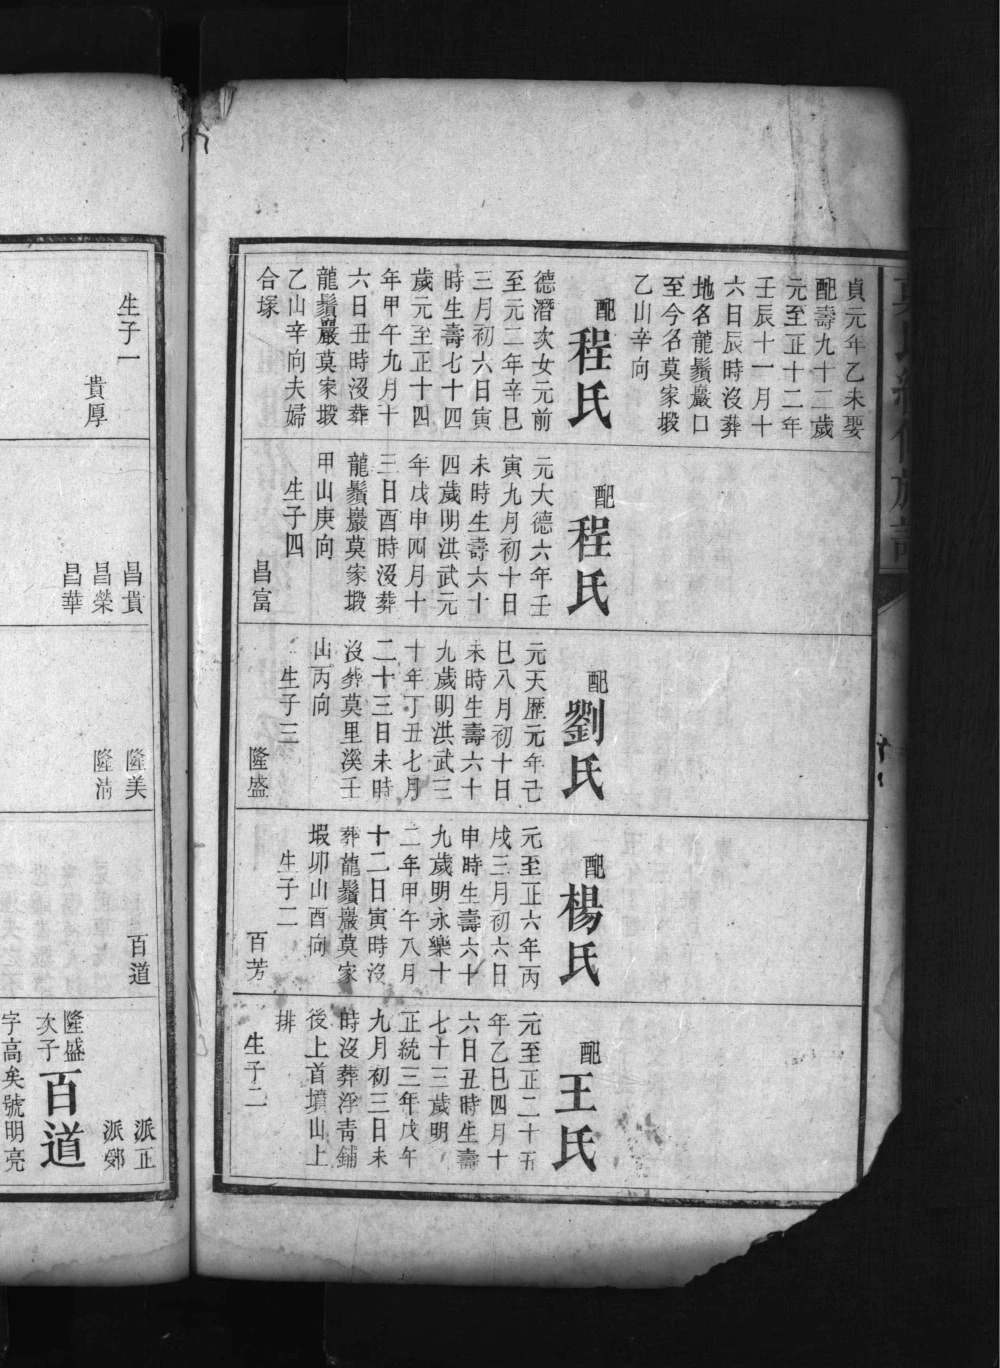 貞元年乙未娶
配壽九十二歲
元至正十二年
壬辰十一月十
六日辰時沒葬
地名龍鬚巖口
至今名莫家塅
乙山辛向
配程氏
德潛次女元前
至元二年辛巳
三月初六日寅
時生壽七十四
歲元至正十四
年甲午九月十
六日丑時沒葬
龍鬚巖莫家塅
乙山辛向夫婦
合塚
生子一
貴厚
配程氏
元大德六年壬
寅九月初十日
未時生壽六十
四歲明洪武元
年戊申四月十
三日酉時沒葬
龍鬚巖莫家塅
甲山庚向
生子四
昌富
昌貴
昌榮
昌華
配劉氏
元天歷元年己
巳八月初十日
未時生壽六十
九歲明洪武三
十年丁丑七月
二十三日未時
沒葬莫里溪壬
山丙向
生子三
隆盛
隆美
隆淸
配楊氏
元至正六年丙
戌三月初六日
申時生壽六十
九歲明永樂十
二年甲午八月
十二日寅時沒
葬龍鬚巖莫家
塅卯山酉向
生子二
百芳
百道
配王氏
元至正二十五
年乙巳四月十
六日丑時生壽
七十三歲明
正統三年戊午
九月初三日未
時沒葬浮靑鋪
後上首墳山上
排
生子二
派正
派鄉
隆盛
次子百道
字高矣號明亮